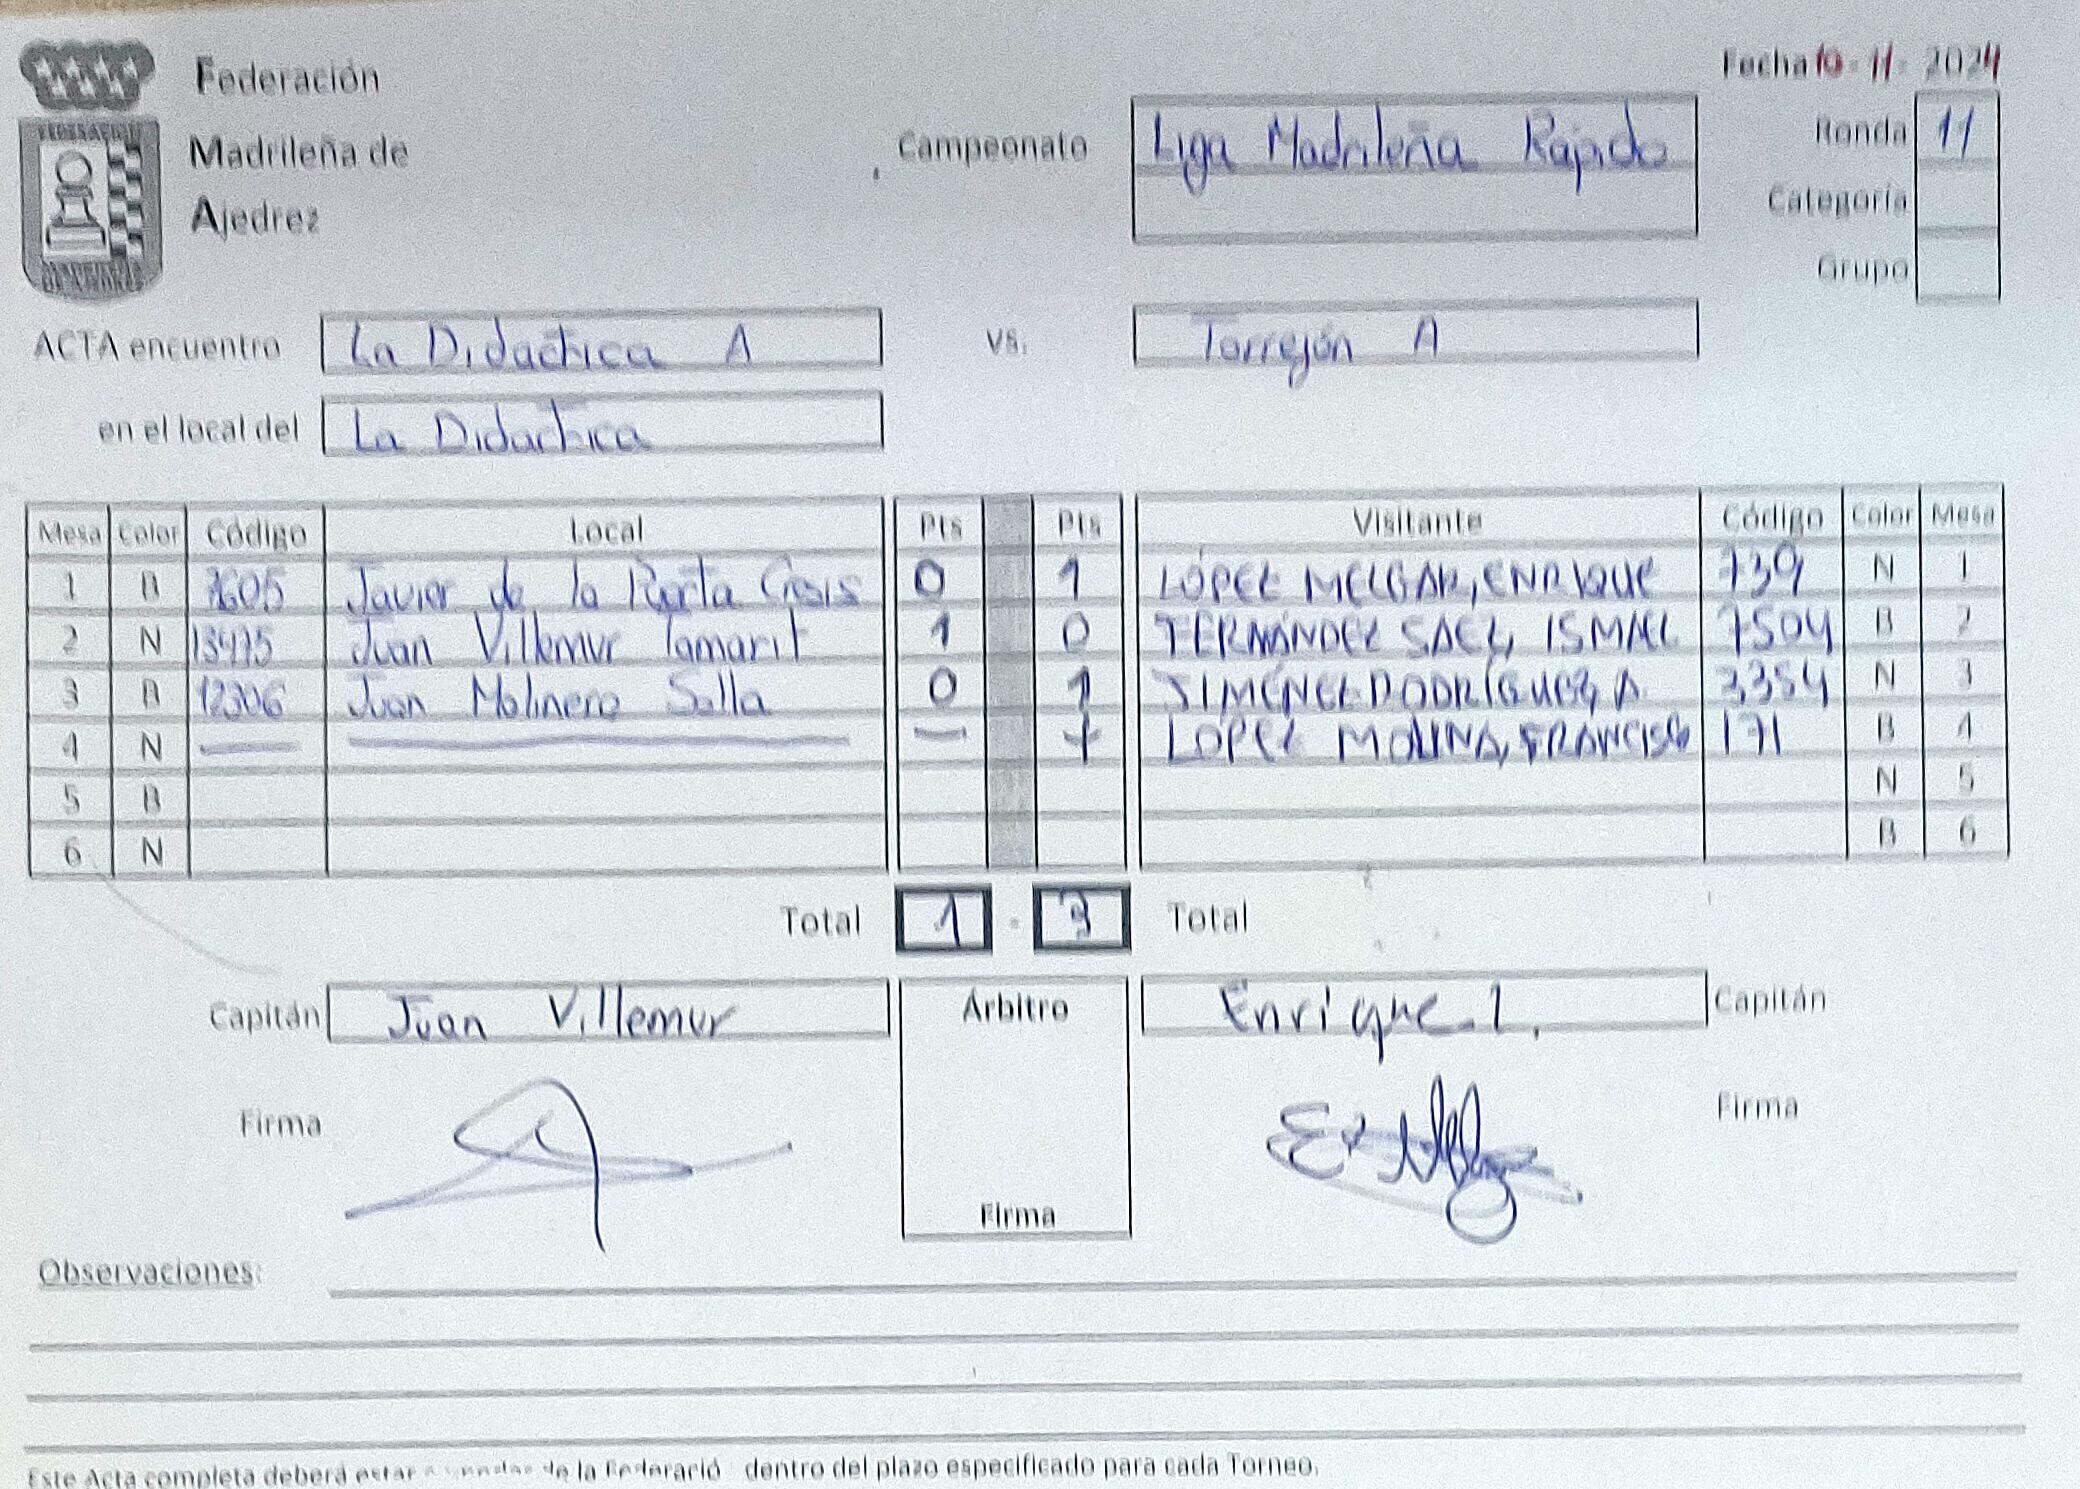 Federación
Madrileña de
Ajedrez
Fecha 10 - 11 - 2024
Campeonato Liga Madrileña Rápido
Ronda 11
Categoría
Grupo
ACTA encuentro La Didactica A vs. Torrejón A
en el local del La Didactica
Mesa Color Código Local Pts Pts Visitante Código Color Mesa
1 B Javier de la 0 1 LÓPEZ MELGAR, ENRIQUE 739 N 1
2 N 13415 Juan Villemur Tamarit 1 0 FERNÁNDEZ SAEZ, ISMAEL 7504 B 2
3 B 12306 Juan Molinero Solla 0 1 JIMÉNEZ RODRÍGUEZ, A. N 3
4 N — — — + LOPEZ MOLINA, FRANCISCO 171 B 4
5 B N 5
6 N B 6
Total 1 - 3 Total
Capitán Juan Villemur Árbitro Enrique L. Capitán
Firma Firma
Firma
Observaciones:
Este Acta completa deberá estar de la dentro del plazo especificado para cada Torneo.